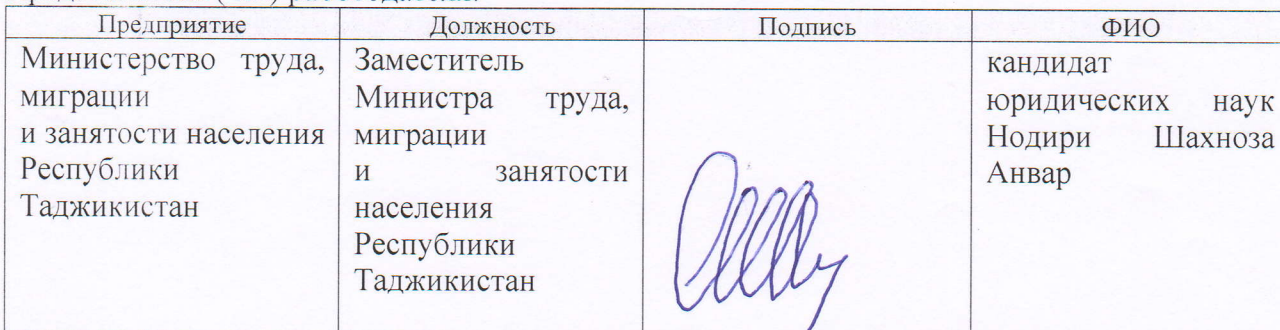 Предприятие Должность Подпись ФИО
Министерство труда,
миграции
и занятости населения
Республики
Таджикистан
Заместитель
Министра труда,
миграции
и занятости
населения
Республики
Таджикистан
кандидат
юридических наук
Нодири Шахноза
Анвар